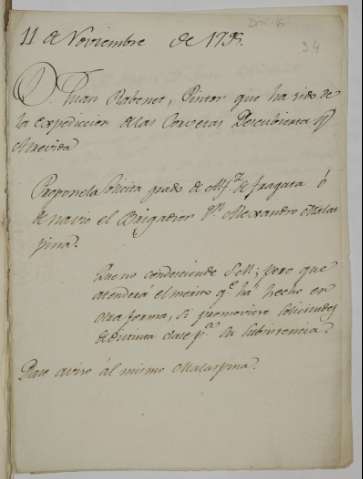 11 de Noviembre de 1795.
D. Juan Rabenet, Pintor que ha sido de
la expedicion de las Corvetas Descubierta y
Atrevida
Propone la solicita grado de Alf.z de fragata ó
de navio el Brigadier Dn. Alexandro Malas
pina.
Que no condesciende S.M.; pero que
atenderá el merito q.e há hecho en
otra forma, si promoviere solicitudes
de distinta clase p.a su subsistencia.
Dase aviso al mismo Malaspina.